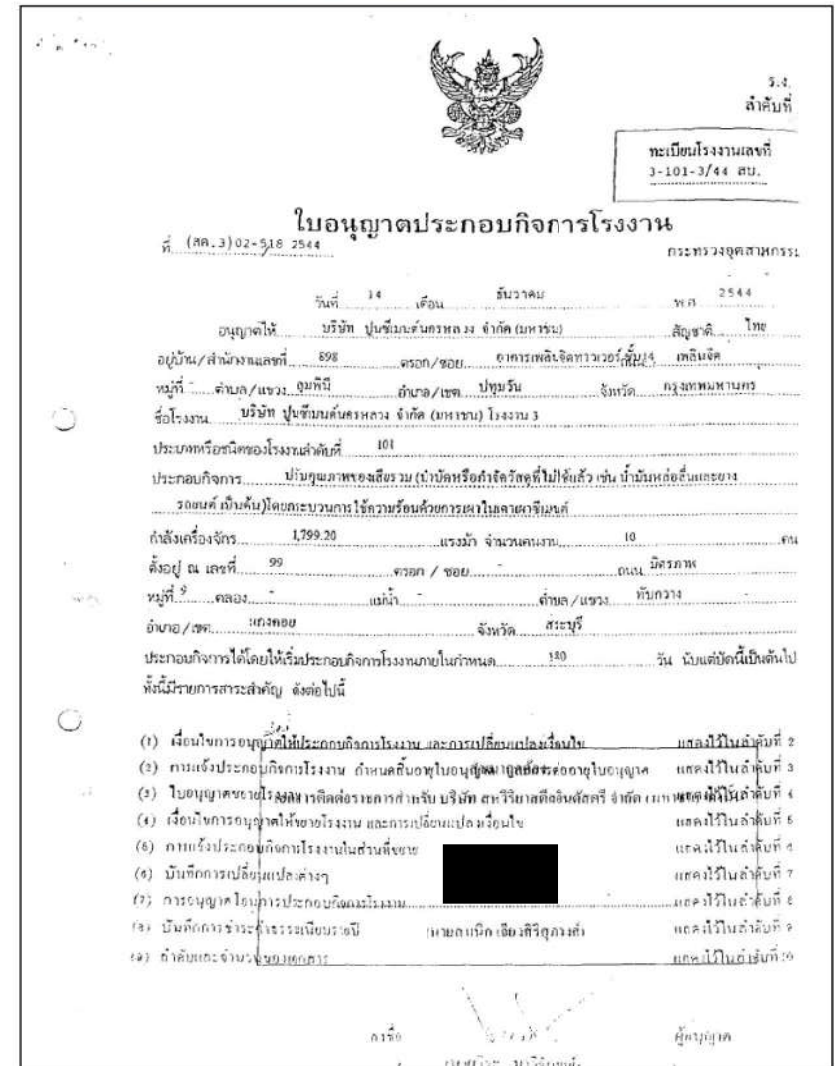 ร.ง.
ลำดับที่
ทะเบียนโรงงานเลขที่
3-101-3/44 สบ.
ใบอนุญาตประกอบกิจการโรงงาน
ที่ (สค.3)02-518 2544
กระทรวงอุตสาหกรร
วันที่ 14 เดือน ธันวาคม พ.ศ. 2544
อนุญาตให้ บริษัท ปูนซีเมนต์นครหลวง จำกัด (มหาชน) สัญชาติ ไทย
อยู่บ้าน/สำนักงานเลขที่ 898 ตรอก/ซอย อาคารเพลินจิตทาวเวอร์ ชั้น14 เพลินจิต
หมู่ที่ - ตำบล/แขวง ลุมพินี อำเภอ/เขต ปทุมวัน จังหวัด กรุงเทพมหานคร
ชื่อโรงงาน บริษัท ปูนซีเมนต์นครหลวง จำกัด (มหาชน) โรงงาน 3
ประเภทหรือชนิดของโรงงานลำดับที่ 101
ประกอบกิจการ ปรับคุณภาพของเสียรวม (บำบัดหรือกำจัดวัสดุที่ไม่ใช้แล้ว เช่น น้ำมันหล่อลื่นและยาง
รถยนต์ เป็นต้น)โดยกระบวนการใช้ความร้อนด้วยการเผาในเตาเผาซีเมนต์
กำลังเครื่องจักร 1,799.20 แรงม้า จำนวนคนงาน 10 คน
ตั้งอยู่ ณ เลขที่ 99 ตรอก / ซอย - ถนน มิตรภาพ
หมู่ที่ 9 คลอง - แม่น้ำ - ตำบล/แขวง ทับกวาง
อำเภอ/เขต แก่งคอย จังหวัด สระบุรี
ประกอบกิจการได้โดยให้เริ่มประกอบกิจการโรงงานภายในกำหนด 180 วัน นับแต่บัดนี้เป็นต้นไป
ทั้งนี้มีรายการสาระสำคัญ ดังต่อไปนี้
(1) เงื่อนไขการอนุญาตให้ประกอบกิจการโรงงาน และการเปลี่ยนแปลงเงื่อนไข แสดงไว้ในลำดับที่ 2
(2) การแจ้งประกอบกิจการโรงงาน กำหนดสิ้นอายุใบอนุญาต การต่ออายุใบอนุญาต แสดงไว้ในลำดับที่ 3
(3) ใบอนุญาตขยายโรงงาน แสดงไว้ในลำดับที่ 4
ใช้เพื่อการติดต่อราชการสำหรับ บริษัท สหวิริยาสตีลอินดัสตรี จำกัด
(4) เงื่อนไขการอนุญาตให้ขยายโรงงาน และการเปลี่ยนแปลงเงื่อนไข แสดงไว้ในลำดับที่ 5
(5) การแจ้งประกอบกิจการโรงงานในส่วนที่ขยาย แสดงไว้ในลำดับที่ 6
(6) บันทึกการเปลี่ยนแปลงต่างๆ แสดงไว้ในลำดับที่ 7
(7) การอนุญาตโอนการประกอบกิจการโรงงาน แสดงไว้ในลำดับที่ 8
(8) บันทึกการชำระค่าธรรมเนียมรายปี แสดงไว้ในลำดับที่ 9
(9) ลำดับและจำนวนของเอกสาร แสดงไว้ในลำดับที่ 10
ลงชื่อ ผู้อนุญาต